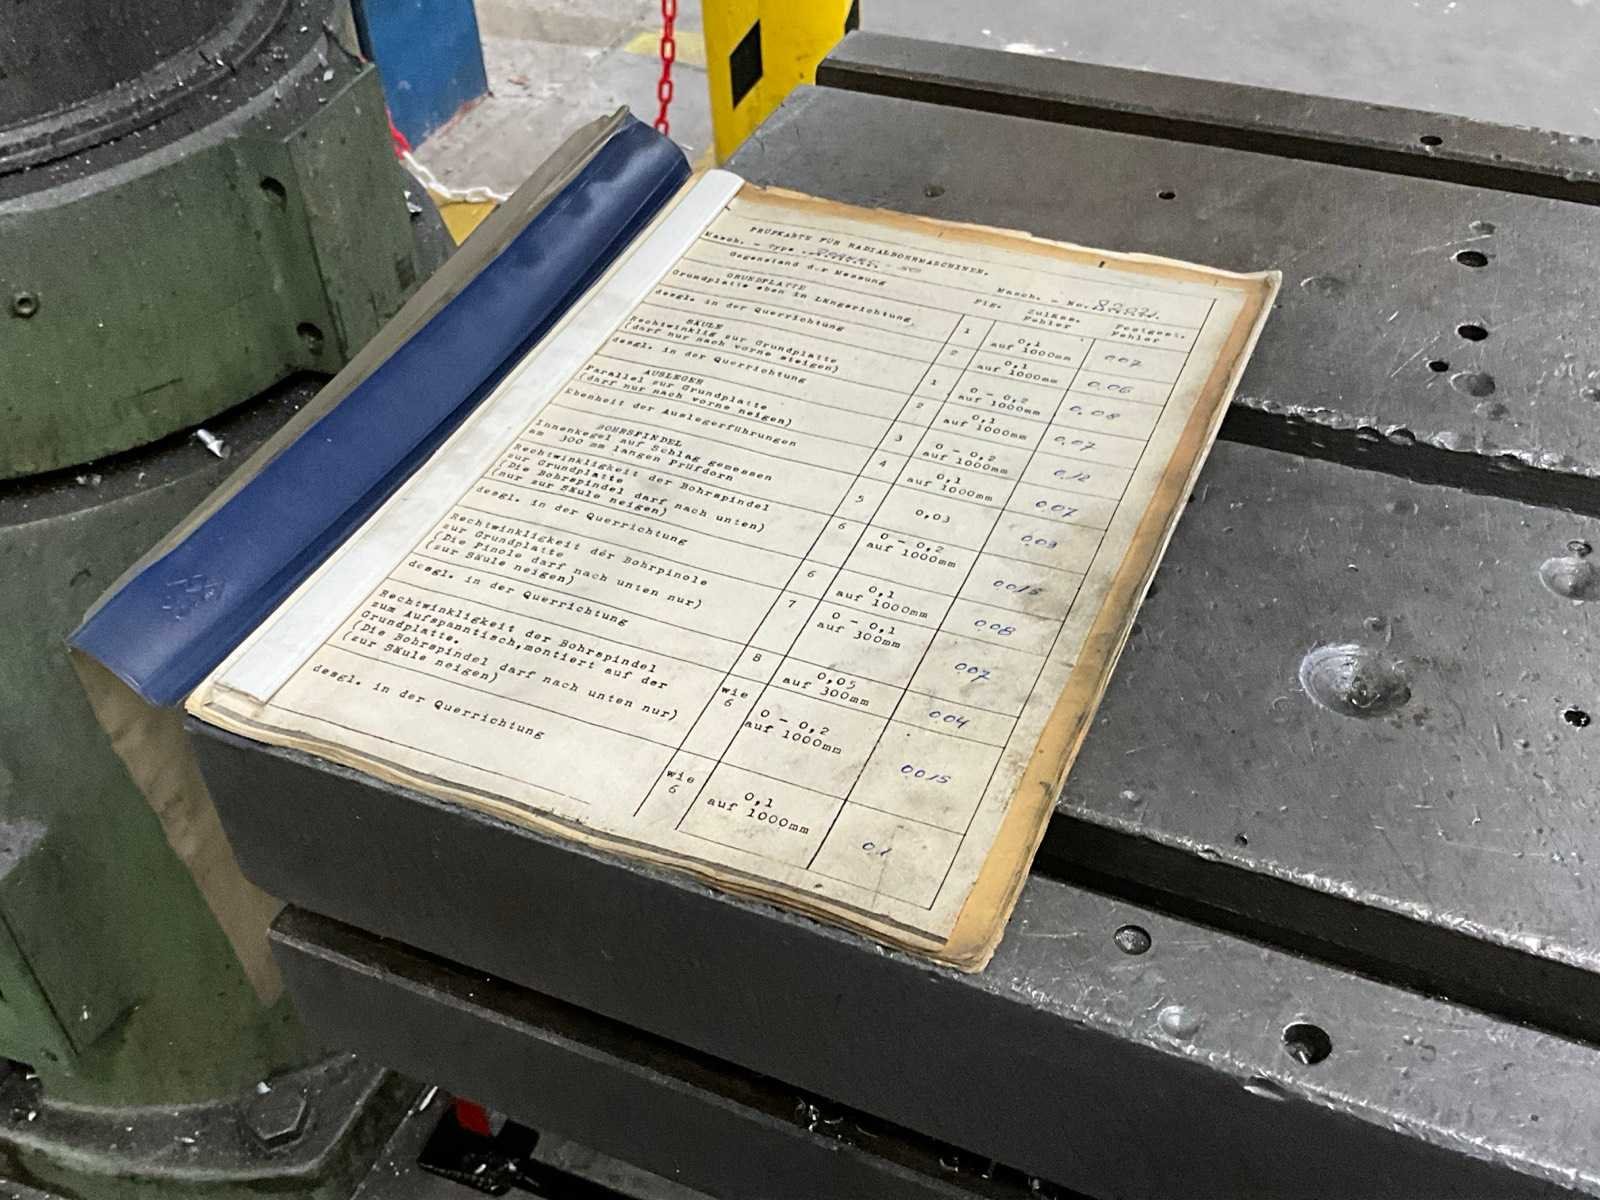 PRÜFKARTE FÜR RADIALBOHRMASCHINEN.
Masch. - Type
Masch. - No.
Gegenstand d.r Messung
Fig. Zuläss. Fehler Festgest. Fehler
GRUNDPLATTE
Grundplatte eben in Längsrichtung 1 0,1 auf 1000mm 0.07
desgl. in der Querrichtung 2 0,1 auf 1000mm 0.06
SÄULE
Rechtwinklig zur Grundplatte
(darf nur nach vorne steigen) 1 0 - 0,2 auf 1000mm 0.08
desgl. in der Querrichtung 2 0,1 auf 1000mm 0.07
AUSLEGER
Parallel zur Grundplatte
(darf nur nach vorne neigen) 3 0 - 0,2 auf 1000mm 0.12
Ebenheit der Auslegerführungen 4 0,1 auf 1000mm 0.07
BOHRSPINDEL
Innenkegel auf Schlag gemessen
am 300 mm langen Prüfdorn 5 0,03 0.03
Rechtwinkligkeit der Bohrspindel
zur Grundplatte
(Die Bohrspindel darf nach unten)
nur zur Säule neigen) 6 0 - 0,2 auf 1000mm 0.015
desgl. in der Querrichtung 6 0,1 auf 1000mm 0.08
Rechtwinkligkeit der Bohrpinole
zur Grundplatte
(Die Pinole darf nach unten nur)
(zur Säule neigen) 7 0 - 0,1 auf 300mm 0.07
desgl. in der Querrichtung 8 0,05 auf 300mm 0.04
Rechtwinkligkeit der Bohrspindel
zum Aufspanntisch,montiert auf der
Grundplatte.
(Die Bohrspindel darf nach unten nur)
(zur Säule neigen) wie 6 0 - 0,2 auf 1000mm 0.015
desgl. in der Querrichtung wie 6 0,1 auf 1000mm 0.1